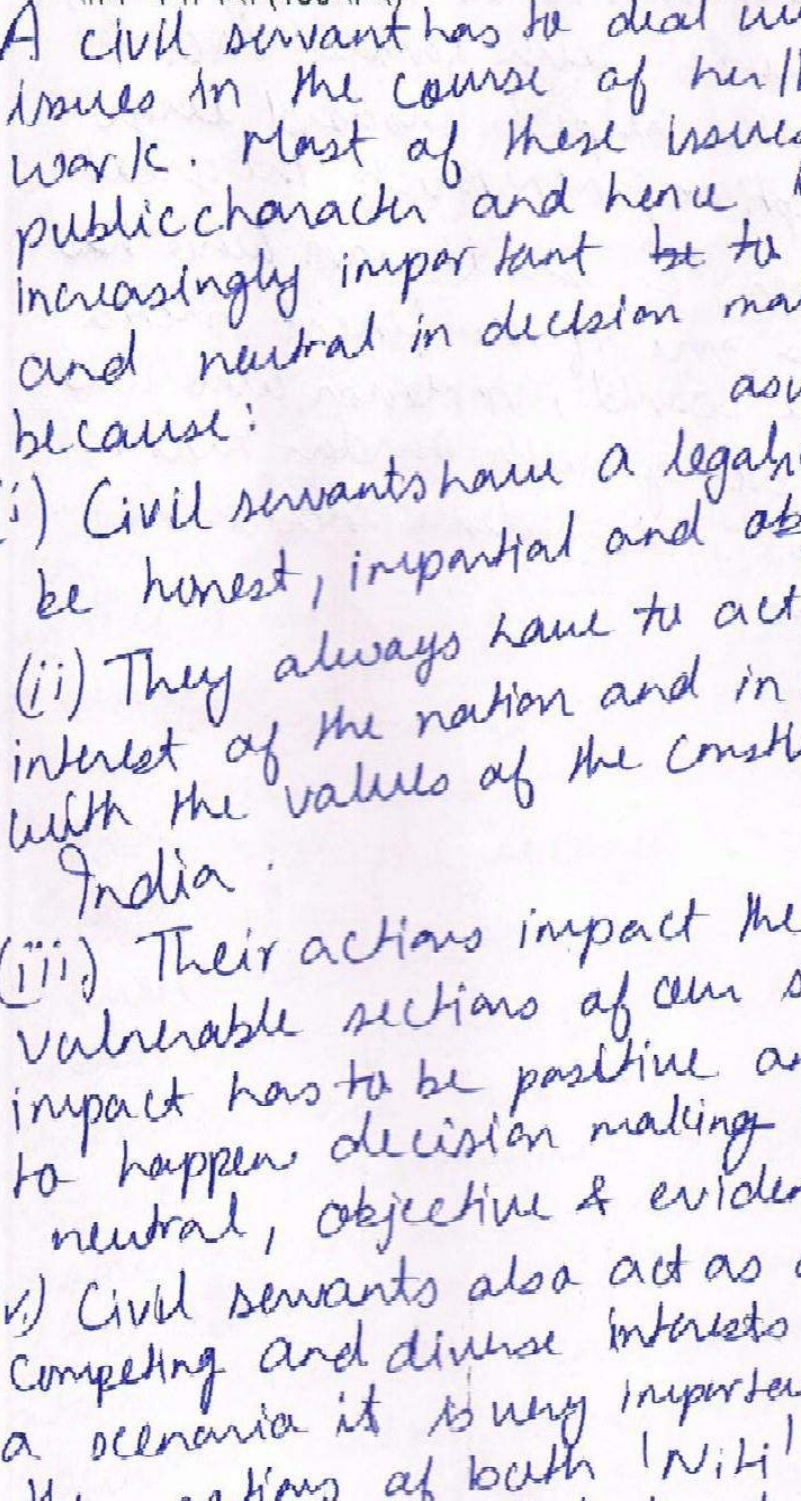 A civil servant has to deal
issues in the course of her/
work. Most of these issues
public character and hence
increasingly important to
and neutral in decision
because:
(i) Civil servants have a
be honest, impartial and
(ii) They always have to act
interest of the nation and in
with the values of the
India.
(iii) Their actions impact the
vulnerable sections of our
impact has to be positive
to happen decision making
neutral, objective &
v) Civil servants also act as
competing and diverse interests
a scenario it is very
of both 'Niti'